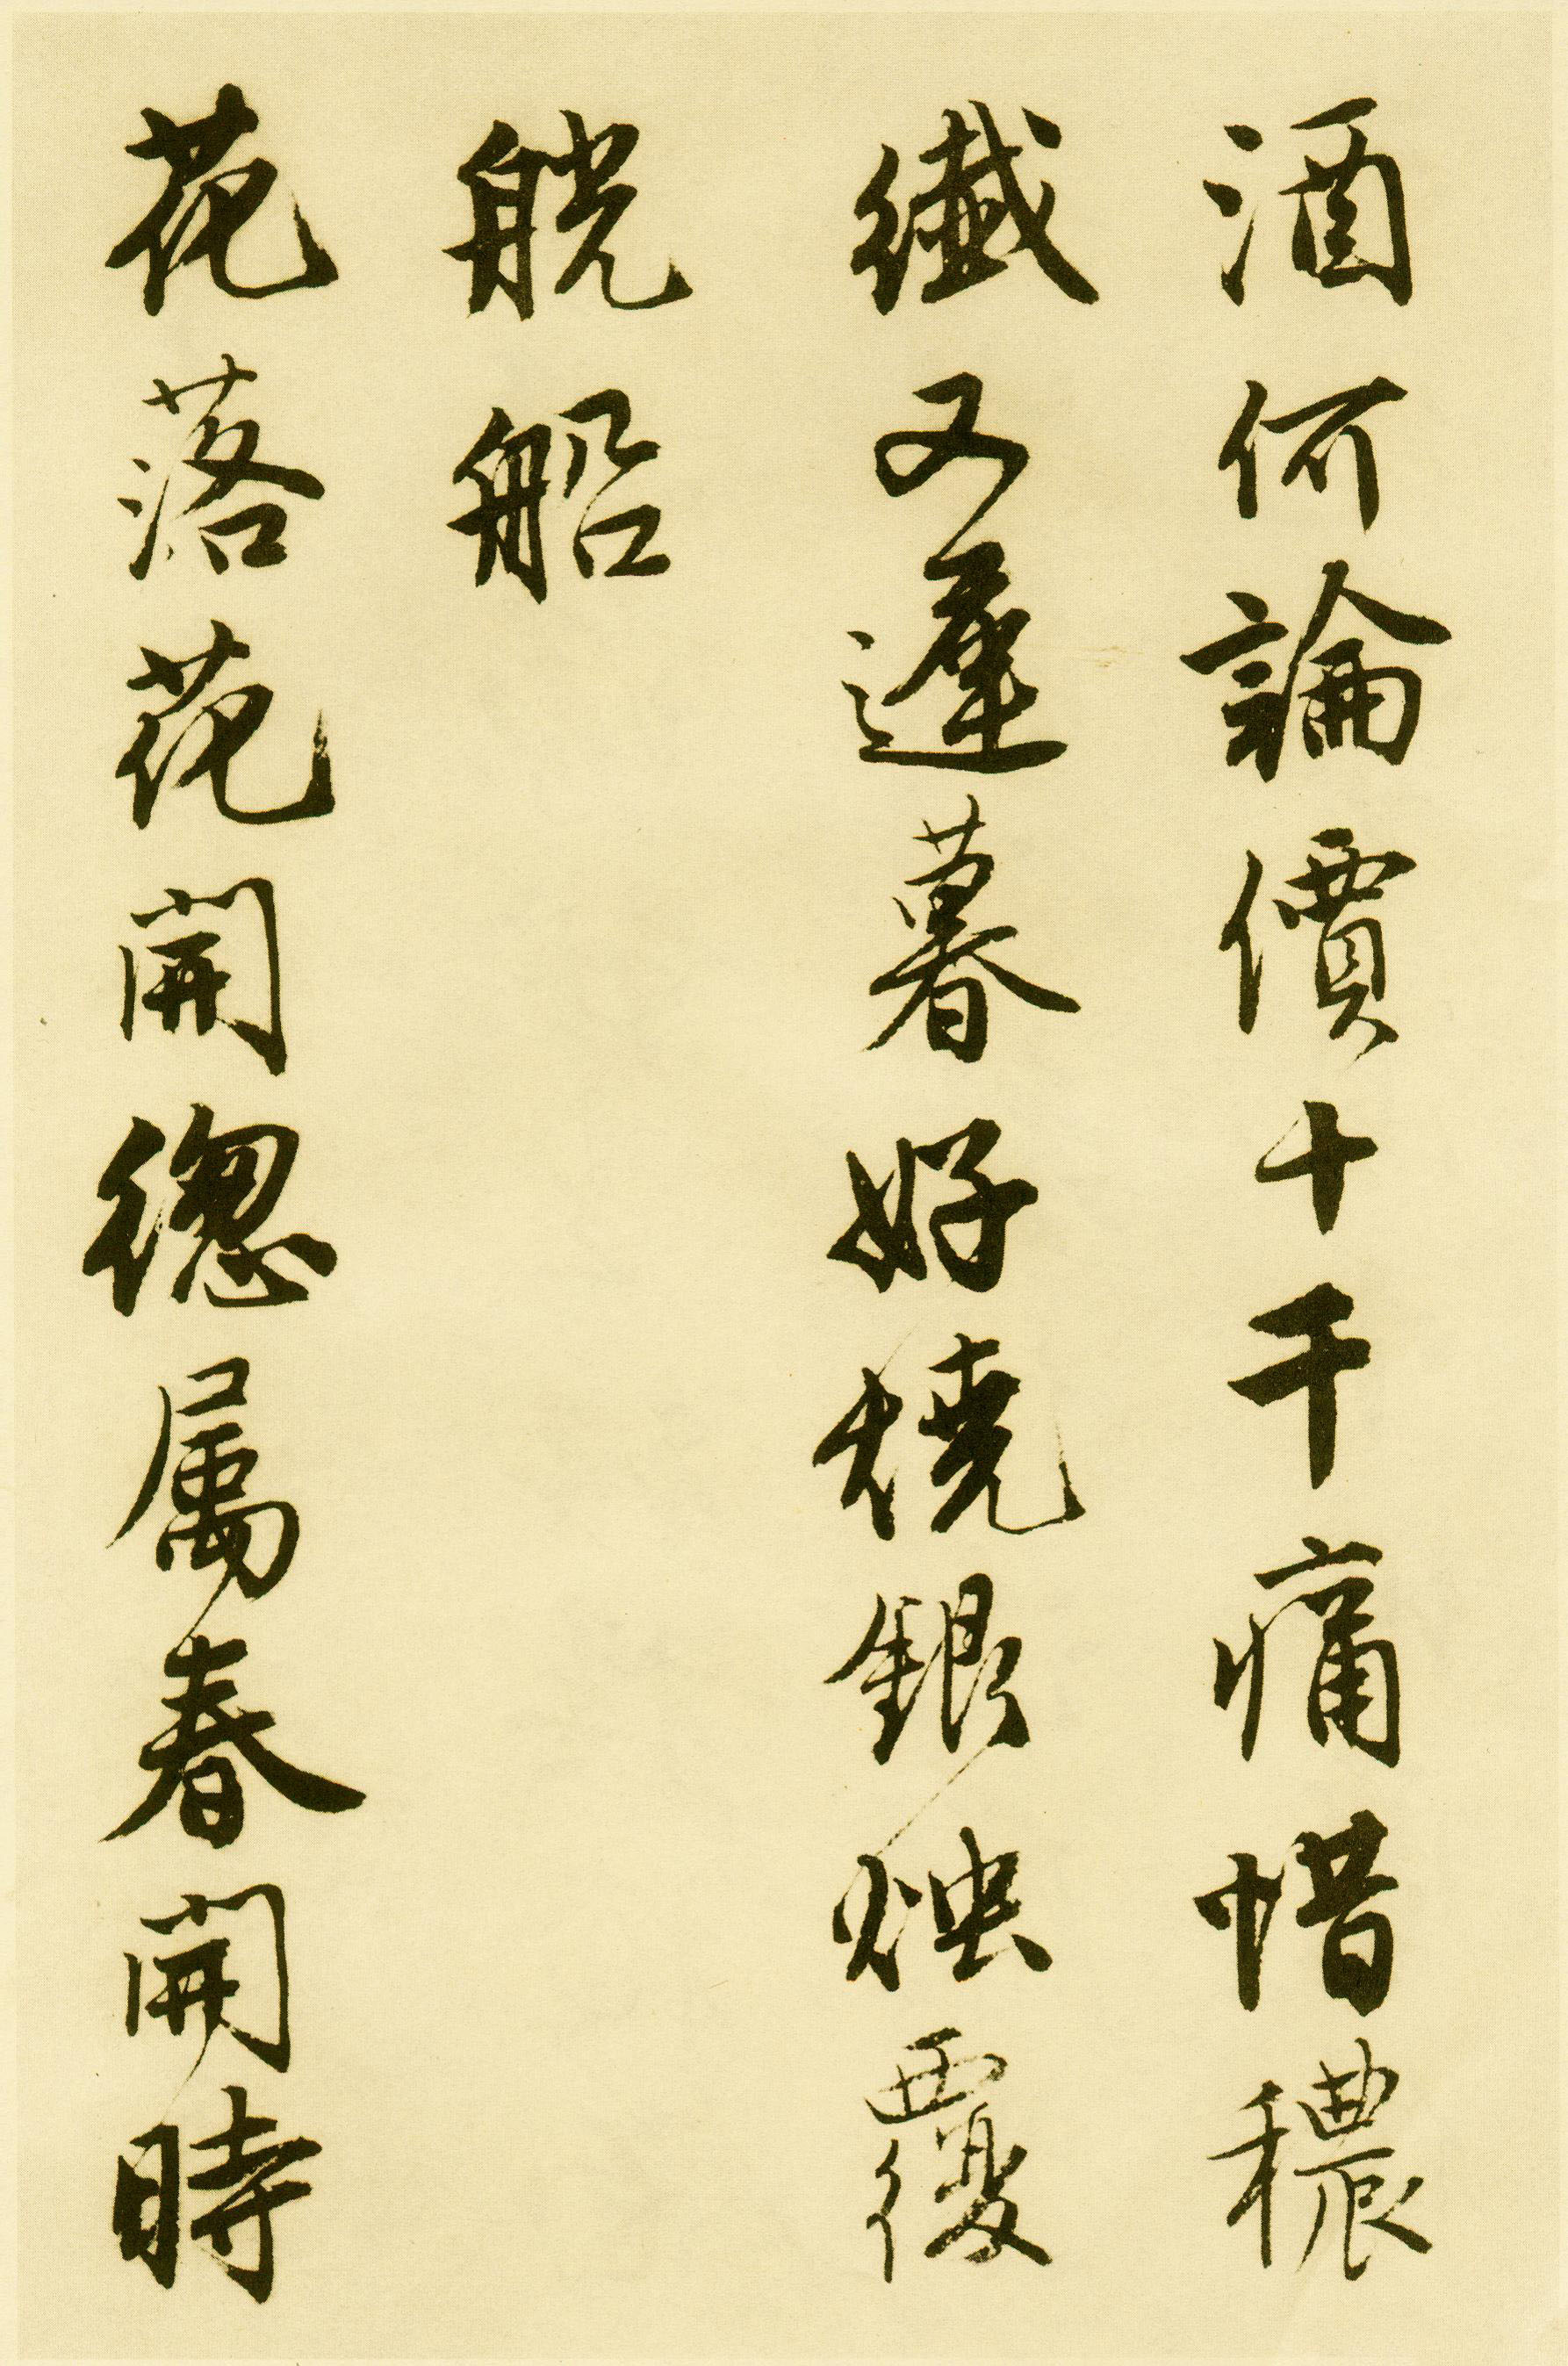 酒何論價十千痛惜穠
纖又遲暮好燒銀烛覆
觥船
花落花開總属春開時